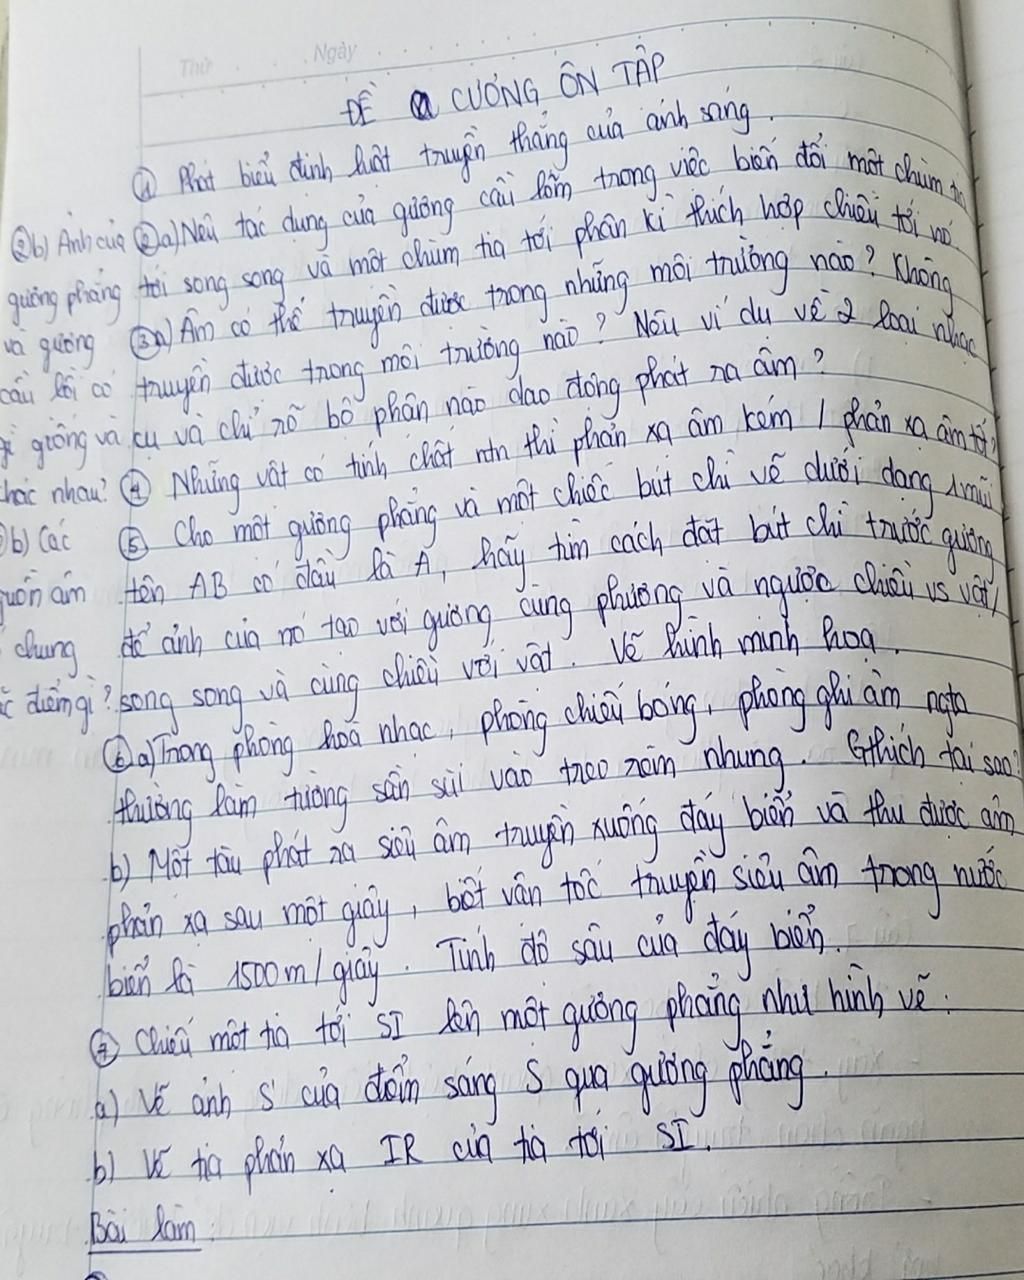 Thứ
Ngày
ĐỀ CƯƠNG ÔN TẬP
① Phát biểu định luật truyền thẳng của ánh sáng.
② a) Nêu tác dụng của gương cầu lõm trong việc biến đổi một chùm tia
tới song song và một chùm tia tới phân kì thích hợp chiếu tới nó
③ a) Âm có thể truyền được trong những môi trường nào? Không
truyền được trong môi trường nào? Nêu ví dụ về 2 loại nhạc
cụ và chỉ rõ bộ phận nào dao động phát ra âm?
④ Những vật có tính chất ntn thì phản xạ âm kém / phản xạ âm tốt?
⑤ Cho một gương phẳng và một chiếc bút chì vẽ dưới dạng 1 mũi
tên AB có đầu là A, hãy tìm cách đặt bút chì trước gương
để ảnh của nó tạo với gương cùng phương và ngược chiều vs vật/
song song và cùng chiều với vật. Vẽ hình minh hoạ.
⑥ a) Trong phòng hoà nhạc, phòng chiếu bóng, phòng ghi âm ngta
thường làm tường sần sùi vào treo rèm nhung. Gthích tại sao?
b) Một tàu phát ra siêu âm truyền xuống đáy biển và thu được âm
phản xạ sau một giây, biết vận tốc truyền siêu âm trong nước
biển là 1500m/giây. Tính độ sâu của đáy biển.
⑦ Chiếu một tia tới SI lên một gương phẳng như hình vẽ.
a) Vẽ ảnh S' của điểm sáng S qua gương phẳng.
b) Vẽ tia phản xạ IR của tia tới SI.
Bài làm:
② b) Ảnh của
gương phẳng
và gương
cầu lồi có
gì giống và
khác nhau?
③ b) Các
nguồn âm
chung
điểm gì?